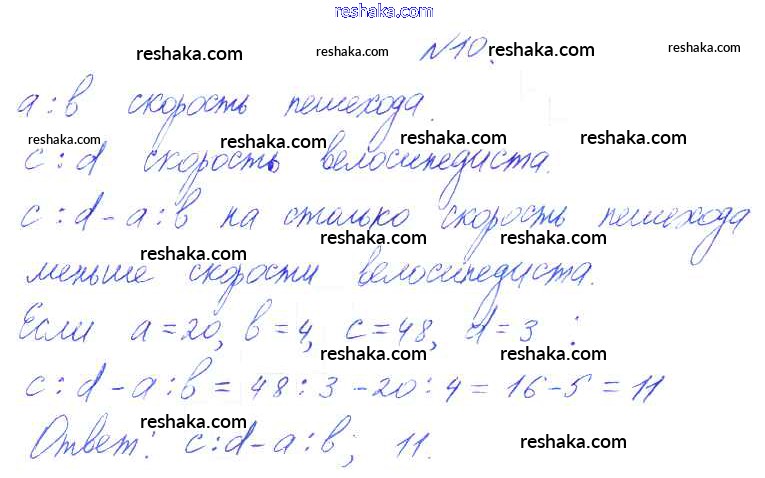 reshaka.com
reshaka.com reshaka.com №10. reshaka.com reshaka.com
a : b скорость пешехода.
reshaka.com reshaka.com reshaka.com reshaka.com
c : d скорость велосипедиста.
c : d - a : b на столько скорость пешехода
reshaka.com reshaka.com reshaka.com
меньше скорости велосипедиста.
Если a = 20, b = 4, c = 48, d = 3 :
reshaka.com reshaka.com
c : d - a : b = 48 : 3 - 20 : 4 = 16 - 5 = 11
reshaka.com reshaka.com
Ответ: c : d - a : b ; 11.
reshaka.com